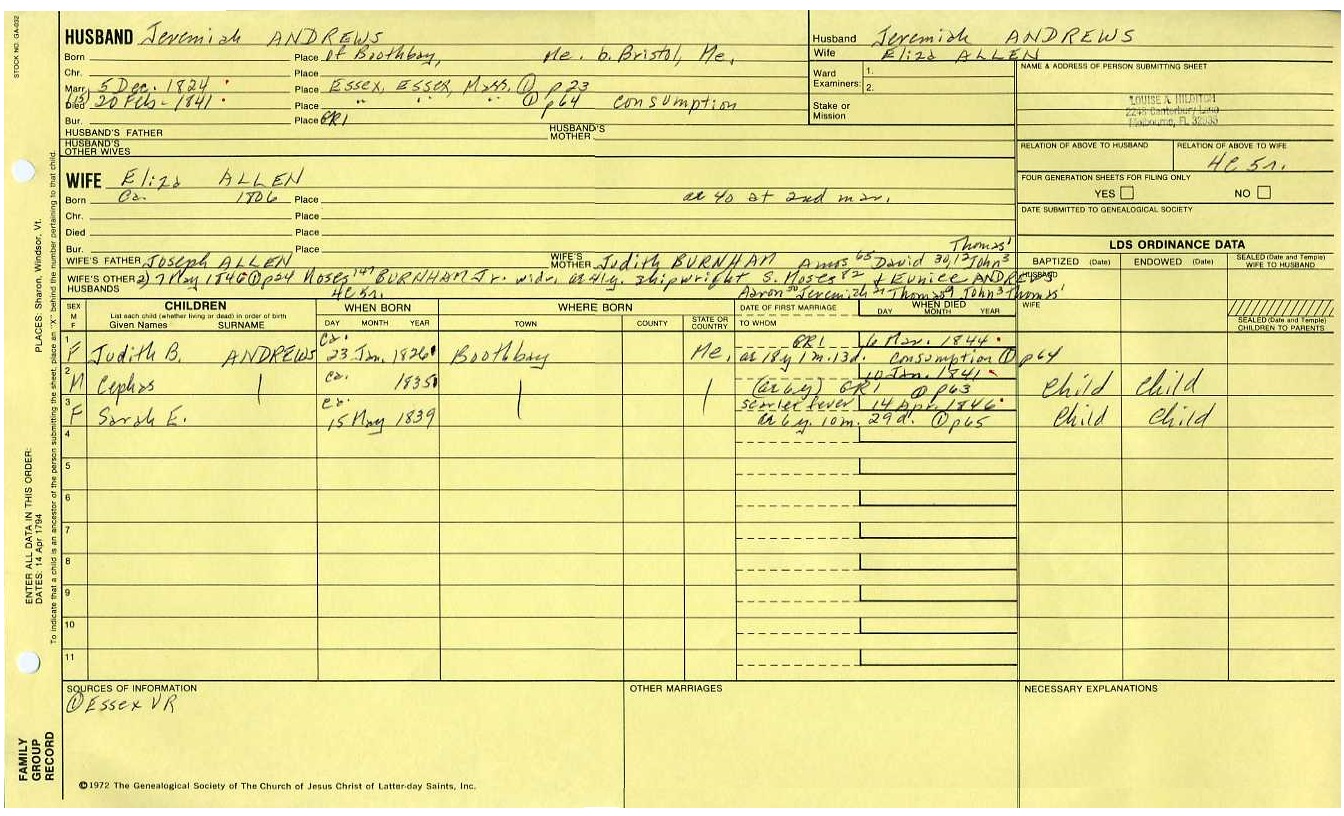 STOCK NO. GA-032
HUSBAND Jeremiah ANDREWS
Born Place of Boothbay, Me. b. Bristol, Me.
Chr. Place
Marr. 5 Dec. 1824 Place Essex, Essex, Mass. ① p23
Died (15) 20 Feb. 1841 Place " " " ① p64 consumption
Bur. Place GR1
HUSBAND'S FATHER HUSBAND'S MOTHER
HUSBAND'S OTHER WIVES
Husband Jeremiah ANDREWS
Wife Eliza ALLEN
Ward Examiners: 1. 2.
Stake or Mission
NAME & ADDRESS OF PERSON SUBMITTING SHEET
LOUISE A. HILDITCH
2248 Canterbury Lane
Melbourne, FL 32935
RELATION OF ABOVE TO HUSBAND RELATION OF ABOVE TO WIFE
4C 5r.
FOUR GENERATION SHEETS FOR FILING ONLY
YES NO
DATE SUBMITTED TO GENEALOGICAL SOCIETY
WIFE Eliza ALLEN
Born Ca. 1806 Place ae 40 at 2nd mar.
Chr. Place
Died Place
Bur. Place
WIFE'S FATHER Joseph ALLEN WIFE'S MOTHER Judith BURNHAM Amos 65 David 30/12 John 3 Thomas 1
WIFE'S OTHER HUSBANDS 2) 7 May 1846 ① p24 Moses 147 BURNHAM Jr. widr. ae 41y. shipwright S. Moses 82 & Eunice ANDREWS
4C 5r. Aaron 50 Jeremiah 21 Thomas 9 John 3 Thomas 1
LDS ORDINANCE DATA
BAPTIZED (Date) ENDOWED (Date) SEALED (Date and Temple) WIFE TO HUSBAND
HUSBAND
WIFE
SEALED (Date and Temple) CHILDREN TO PARENTS
SEX M F
CHILDREN
List each child (whether living or dead) in order of birth
Given Names SURNAME
WHEN BORN
DAY MONTH YEAR
WHERE BORN
TOWN COUNTY STATE OR COUNTRY
DATE OF FIRST MARRIAGE
TO WHOM
WHEN DIED
DAY MONTH YEAR
1 F Judith B. ANDREWS Ca. 23 Jan. 1826 Boothbay Me. GR1 6 Mar. 1844
ae 18y 1m. 13d. consumption ① p64
2 M Cephas ca. 1835 10 Jan. 1841
(ae 6y) GR1 ① p63 Child Child
3 F Sarah E. ca. 15 May 1839 scarlet fever 14 Apr. 1846
ae 6y. 10m. 29d. ① p65 Child Child
4
5
6
7
8
9
10
11
SOURCES OF INFORMATION
① Essex VR
OTHER MARRIAGES
NECESSARY EXPLANATIONS
©1972 The Genealogical Society of The Church of Jesus Christ of Latter-day Saints, Inc.
FAMILY GROUP RECORD
ENTER ALL DATA IN THIS ORDER:
DATES: 14 Apr 1794
PLACES: Sharon, Windsor, Vt.
To indicate that a child is an ancestor of the person submitting the sheet, place an "X" behind the number pertaining to that child.